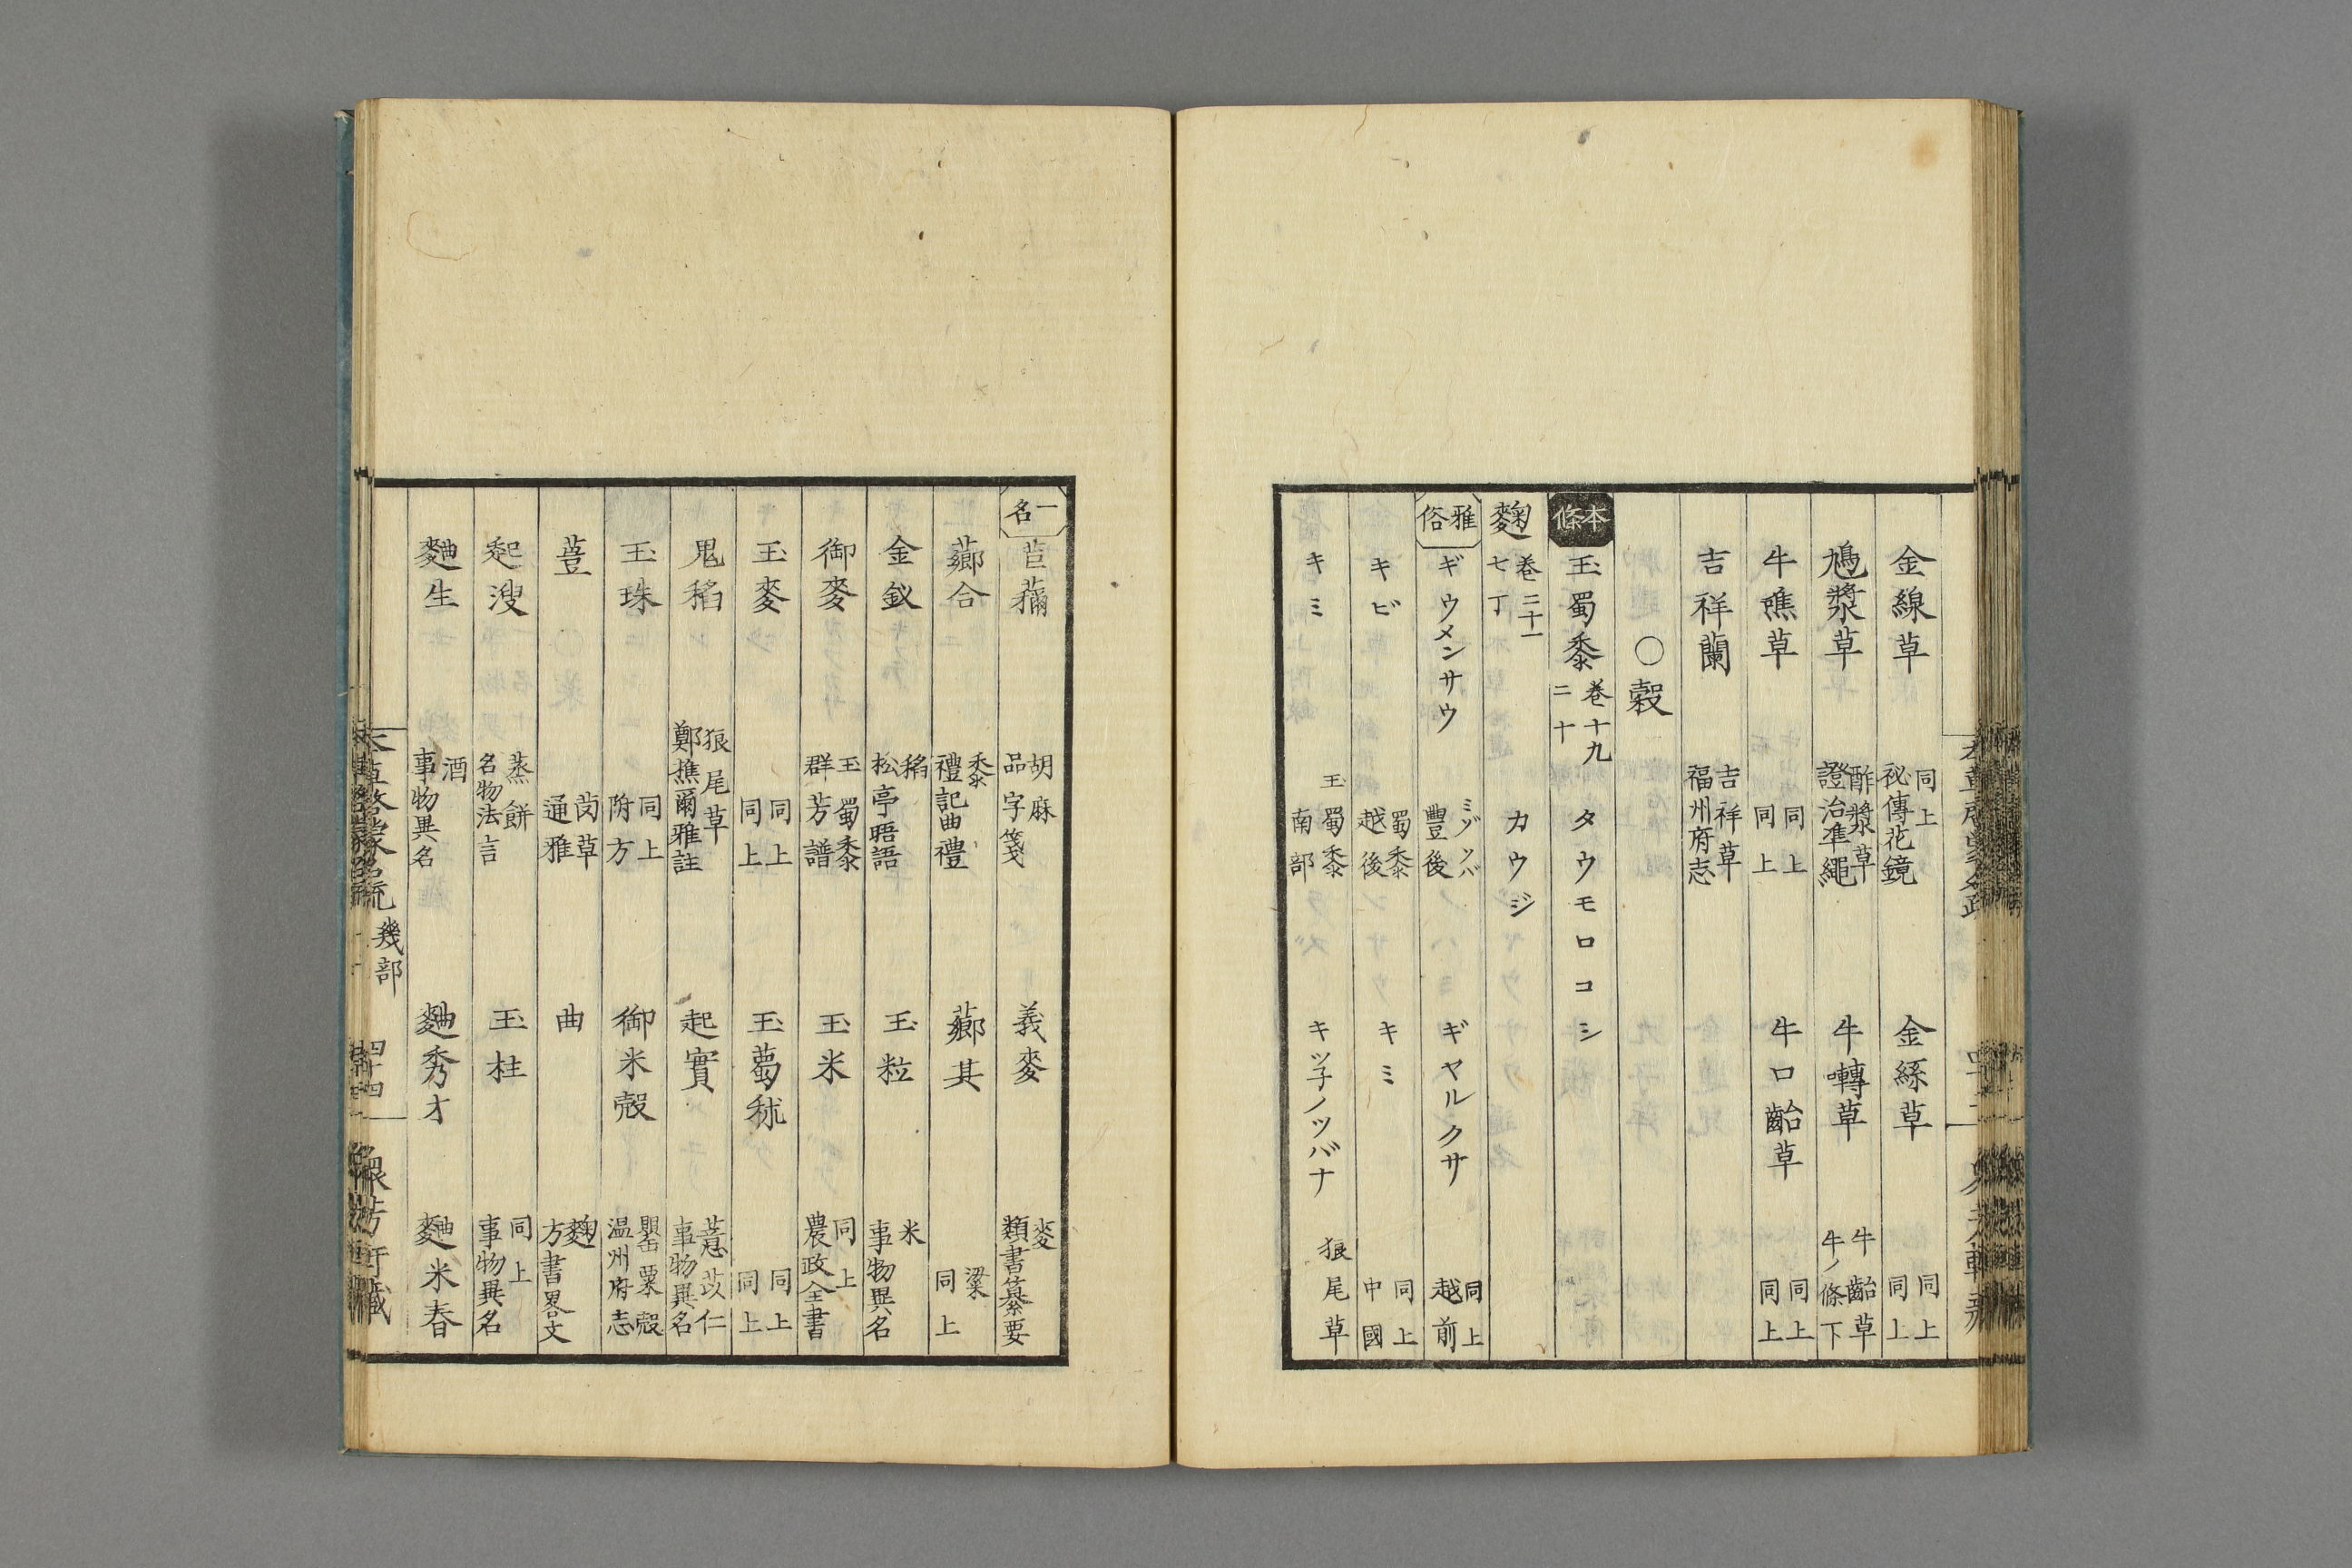 金線草 同上 祕傳花鏡 金絲草 同上 同上
鳩漿草 酢漿草 證治準繩 牛囀草 牛齝草 牛ノ條下
牛醮草 同上 同上 牛口齝草 同上 同上
吉祥蘭 吉祥草 福州府志
○穀
本條 玉蜀黍 卷十九 二十 タウモロコシ
麴 卷二十一 七丁 カウジ
雅俗 ギウメンサウ ミゾソバ 豐後 ギヤルクサ 同上 越前
キビ 蜀黍 越後 キミ 同上 中國
キミ 玉蜀黍 南部 キツ子ノツバナ 狼尾草
一名 苣蕂 胡麻 品字箋 義麥 麥 類書纂要
薌合 黍 禮記曲禮 薌其 粱 同上
金釵 稻 松亭晤語 玉粒 米 事物異名
御麥 玉蜀黍 群芳譜 玉米 同上 農政全書
玉麥 同上 同上 玉蔔秫 同上 同上
鬼稻 狼尾草 鄭樵爾雅註 起實 薏苡仁 事物異名
玉珠 同上 附方 御米殼 罌粟殼 温州府志
荳 䒢草 通雅 曲 麴 方書畧文
起溲 蒸餅 名物法言 玉柱 同上 事物異名
麯生 酒 事物異名 麯秀才 麯米春
幾部 四十四